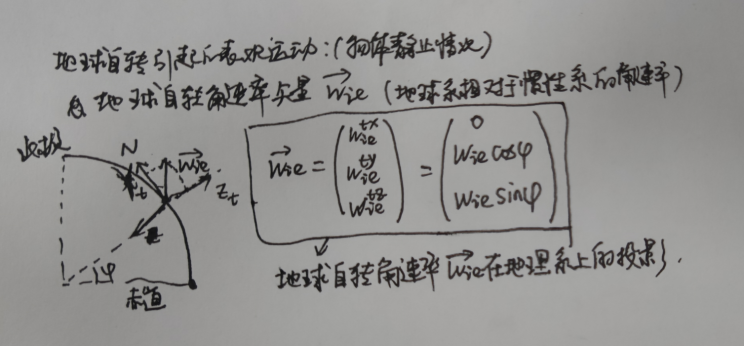 地球自转引起的表观运动：(物体静止情况)
地球自转角速率矢量 $\vec{w_{ie}}$ (地球系相对于惯性系的角速率)
北极 N $\vec{w_{ie}}$ t $z_t$ φ 赤道
$\vec{w_{ie}} = \begin{pmatrix} w_{ie}^{tx} \\ w_{ie}^{ty} \\ w_{ie}^{tz} \end{pmatrix} = \begin{pmatrix} 0 \\ w_{ie}\cos\varphi \\ w_{ie}\sin\varphi \end{pmatrix}$
地球自转角速率 $\vec{w_{ie}}$ 在地理系上的投影.